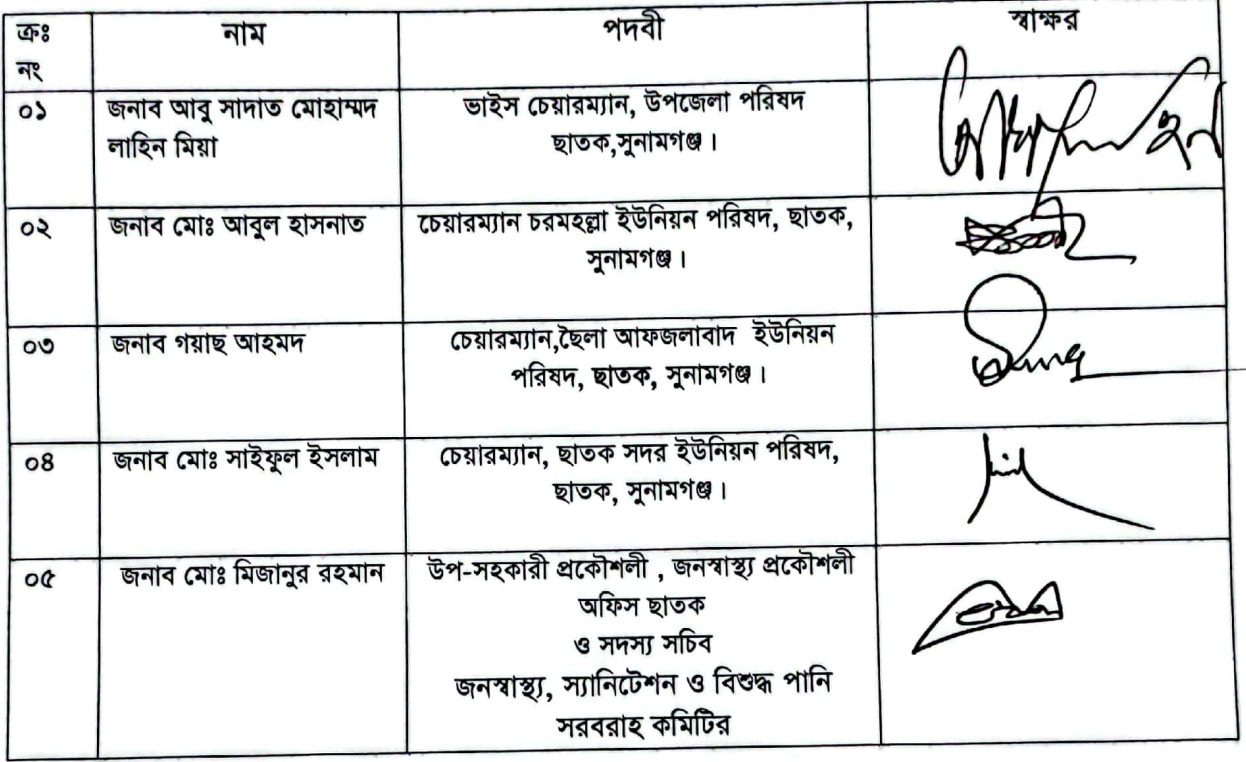 ক্রঃ নং নাম পদবী স্বাক্ষর
০১ জনাব আবু সাদাত মোহাম্মদ ভাইস চেয়ারম্যান, উপজেলা পরিষদ
লাহিন মিয়া ছাতক,সুনামগঞ্জ।
০২ জনাব মোঃ আবুল হাসনাত চেয়ারম্যান চরমহল্লা ইউনিয়ন পরিষদ, ছাতক,
সুনামগঞ্জ।
০৩ জনাব গয়াছ আহমদ চেয়ারম্যান,ছৈলা আফজলাবাদ ইউনিয়ন
পরিষদ, ছাতক, সুনামগঞ্জ।
০৪ জনাব মোঃ সাইফুল ইসলাম চেয়ারম্যান, ছাতক সদর ইউনিয়ন পরিষদ,
ছাতক, সুনামগঞ্জ।
০৫ জনাব মোঃ মিজানুর রহমান উপ-সহকারী প্রকৌশলী , জনস্বাস্থ্য প্রকৌশলী
অফিস ছাতক
ও সদস্য সচিব
জনস্বাস্থ্য, স্যানিটেশন ও বিশুদ্ধ পানি
সরবরাহ কমিটির